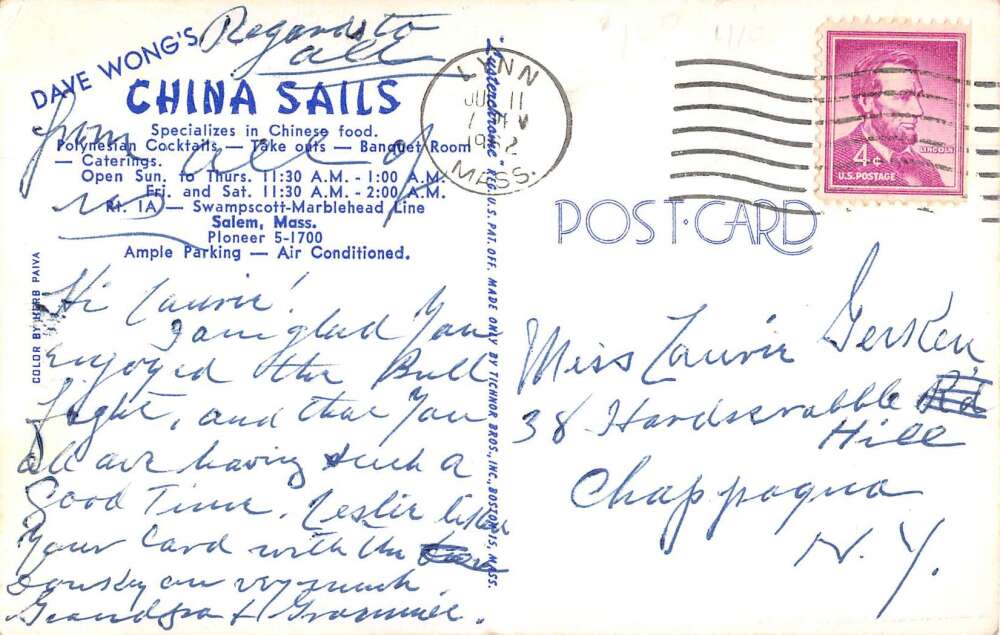 Regards to
all
from all of
us
DAVE WONG'S
CHINA SAILS
Specializes in Chinese food.
Polynesian Cocktails — Take outs — Banquet Room
— Caterings.
Open Sun. to Thurs. 11:30 A.M. - 1:00 A.M.
Fri. and Sat. 11:30 A.M. - 2:00 A.M.
Rt. 1A — Swampscott-Marblehead Line
Salem, Mass.
PIoneer 5-1700
Ample Parking — Air Conditioned.
COLOR BY HERB PAIVA
Hi Laurie!
I am glad you
enjoyed the Bull
fight, and that you
all are having such a
Good Time. Leslie liked
your card with the
donkey on very much.
Grandpa & Grammie.
"Lusterchrome" REG. U.S. PAT. OFF. MADE ONLY BY TICHNOR BROS., INC., BOSTON 15, MASS.
LYNN
11
MASS.
LINCOLN
4¢
U.S. POSTAGE
POST CARD
Miss Laurie Gerken
38 Hardscrabble Rd
Hill
Chappaqua
N.Y.